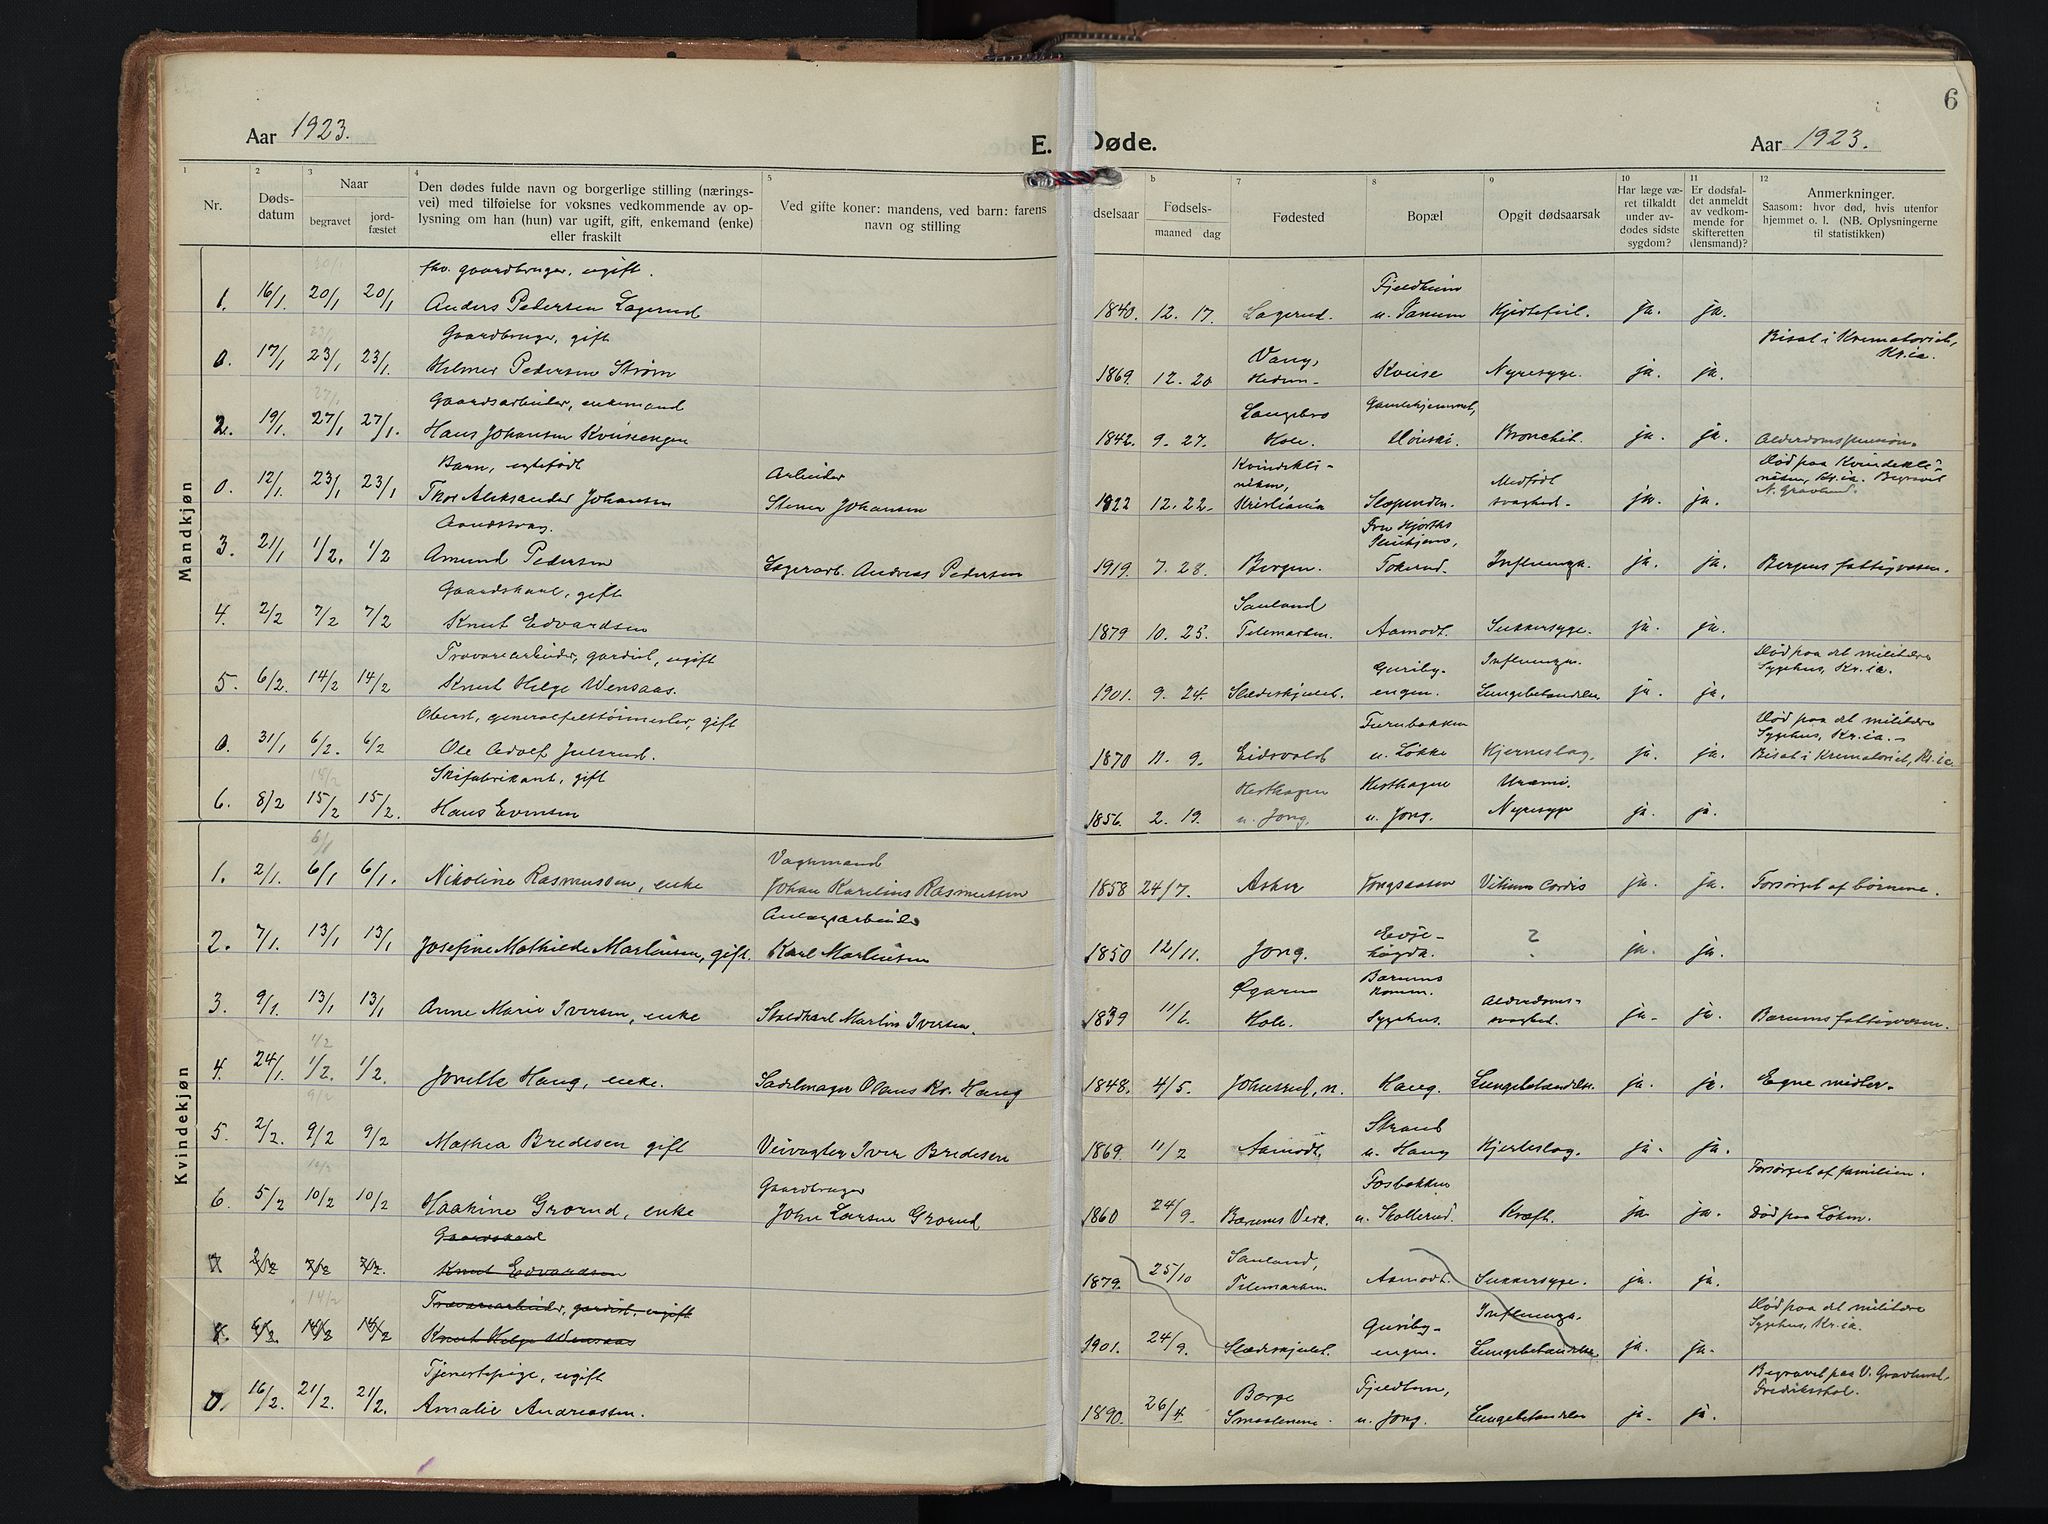 Aar 1923.
E. Døde.
Aar 1923.
6
1
2
3
4
5
b
7
8
9
10
11
12
Nr.
Døds-
datum
Naar
begravet
jord-
fæstet
Den dødes fulde navn og borgerlige stilling (nærings-
vei) med tilføielse for voksnes vedkommende av op-
lysning om han (hun) var ugift, gift, enkemand (enke)
eller fraskilt
Ved gifte koner: mandens, ved barn: farens
navn og stilling
ødselsaar
Fødsels-
maaned dag
Fødested
Bopæl
Opgit dødsaarsak
Har læge væ-
ret tilkaldt
under av-
dødes sidste
sygdom?
Er dødsfal-
det anmeldt
av vedkom-
mende for
skifteretten
(lensmand)?
Anmerkninger.
Saasom: hvor død, hvis utenfor
hjemmet o. l. (NB. Oplysningerne
til statistikken)
Mandkjøn
fhv. gaardbruger, ugift.
1. 16/1 20/1 20/1 Anders Pedersen Lagerud
Fjeldheim
1840. 12. 17. Lagerud. u. Tanum Hjertefeil. ja. ja.
Gaardbruger, gift
0. 17/1 23/1 23/1 Helmer Pedersen Strøm
Vang, Bisat i Krematoriet,
1869. 12. 20 Hedem- Kveise Nyresyge. ja. ja. Kr.ia.
Gaardsarbeider, enkemand
2. 19/1 27/1 27/1. Hans Johansen Kveisengen
Langebro Gamlehjemmet,
1842. 9. 27. Hole. Hønski. Bronchit. ja. ja. Alderdomspension.
Barn, egtefødt Arbeider
0. 12/1. 23/1 23/1 Thor Aleksander Johansen Stener Johansen
Kvindekli- Medfødt Død paa Kvindekli-
niken, niken, Kr.ia. Begravet
1922 12. 22. Kristiania Slependen. svaghed. ja. ja. N. Gravlund.
Aandssvag.
3. 21/1 1/2. 1/2 Amund Pedersen Lagerarb. Andreas Pedersen
Fru Hjorths
Pleiehjem,
1919. 7. 28. Bergen. Tokerud. Influenza. ja. ja. Bergens fattigvæsen.
Gaardskarl, gift
4. 2/2 7/2 7/2 Knut Edvardsen
Sauland
1879 10. 25. Telemarken. Aamodt. Sukkersyge. ja. ja.
Trævarearbeider, gardist, ugift
5. 6/2. 14/2 14/2 Knut Helge Wensaas.
Guriby- Influenza. Død paa det militære
1901. 9. 24. Slædeskjulet. engen. Lungebetændelse ja. ja. Sygehus, Kr.ia.
Oberst, generalfelttøimester, gift
0. 31/1 6/2. 6/2 Ole Adolf Julsrud.
Furubakken Død paa det militære
Sygehus, Kr.ia.
1870 11. 9. Eidsvold u. Løkke Hjerneslag. ja. ja. Bisat i Krematoriet, Kr.ia.
Skifabrikant, gift
6. 8/2 15/2 15/2. Hans Evensen
Hesthagen Hesthagen Uræmi.
1856. 2. 19. u. Jong. u. Jong. Nyresyge ja. ja.
Kvindekjøn
Vognmand
1. 2/1. 6/1 6/1. Nikoline Rasmussen, enke Johan Karelius Rasmussen
1858 24/7. Asker Jongsaasen Vitium Cordis ja. ja. Forsørget af børnene.
Anlægsarbeider
2. 7/1. 13/1 13/1 Josefine Mathilde Martinsen, gift. Karl Martinsen
Evje-
1850 12/11. Jong. høgda. ? ja. ja.
3. 9/1 13/1 13/1 Anne Marie Iversen, enke Staldkarl Martin Iversen.
Øgaren Bærums
komm. Alderdoms-
1839 11/2. Hole. Sygehus. svaghed. ja. ja. Bærums fattigvæsen.
4. 24/1. 1/2. 1/2. Jonette Haug, enke. Sadelmager Olaus Kr. Haug
1848. 4/5. Johnsrud, n. Haug. Lungebetændelse. ja. ja. Egne midler.
5. 2/2. 9/2 9/2 Mathea Bredesen gift Veivogter Iver Bredesen
Strand
1869. 11/2 Aamodt. u. Haug Hjerteslag. ja. ja.
Gaardbruger
6. 5/2 10/2 10/2 Haakine Grorud, enke John Larsen Grorud
Fosbakken Forsørget af familien.
1860 24/9. Bærums Verk. u. Skollerud. Kræft. ja. ja. Død paa Løken.
Gaardskarl
7 2/2 7/2 7/2. Knut Edvardsen
Sauland,
1879. 25/10 Telemarken Aamodt. Sukkersyge. ja. ja.
Trævarearbeider, gardist, ugift
8. 6/2 14/2 14/2 Knut Helge Wensaas
Guriby- Influenza. Død paa det militære
1901. 24/9. Slædeskjulet. engen. Lungebetændelse ja. ja. Sygehus, Kr.ia.
Tjenestepige, ugift
0. 16/2. 21/2. 21/2. Amalie Andreassen.
Borge Fjeldtom, Begravet paa V. Gravlund,
Fredriksstad.
1890. 26/4. Smaalenene. u. Jong. Lungebetændelse ja. ja.